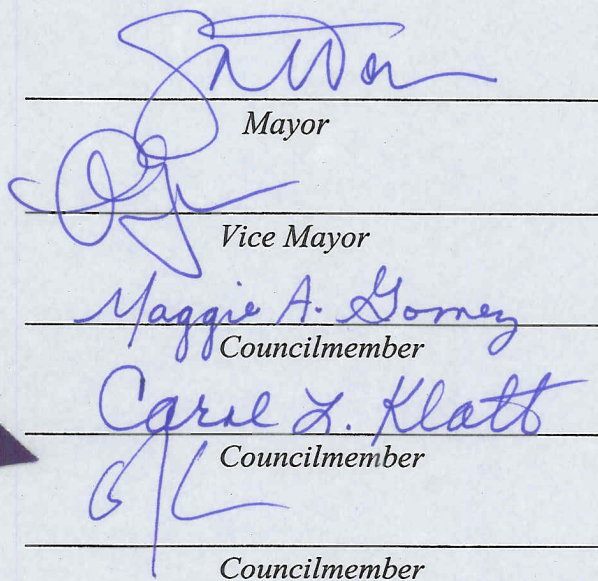 Mayor
Vice Mayor
Maggie A. Gomez
Councilmember
Carol L. Klatt
Councilmember
Councilmember